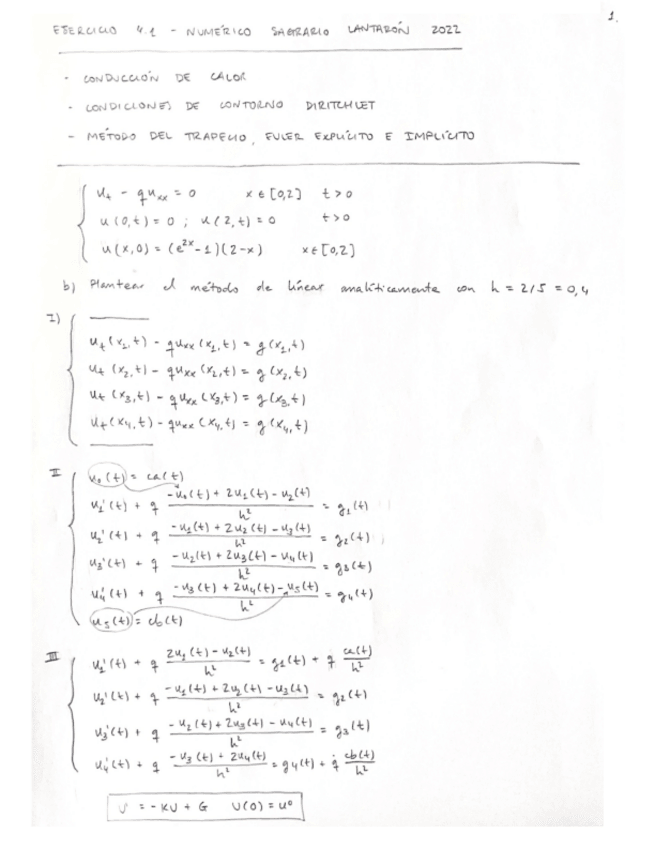 1.
EJERCICIO 4.1 - NUMÉRICO SAGRARIO LANTARÓN 2022
- CONDUCCIÓN DE CALOR
- CONDICIONES DE CONTORNO DIRITCHLET
- MÉTODO DEL TRAPECIO, EULER EXPLÍCITO E IMPLÍCITO
u_t - q u_xx = 0 x ∈ [0,2] t > 0
u(0,t) = 0 ; u(2,t) = 0 t > 0
u(x,0) = (e^{2x} - 1)(2-x) x ∈ [0,2]
b) Plantear el método de líneas analíticamente con h = 2/5 = 0,4
I)
u_t(x_1,t) - q u_xx(x_1,t) = g(x_1,t)
u_t(x_2,t) - q u_xx(x_2,t) = g(x_2,t)
u_t(x_3,t) - q u_xx(x_3,t) = g(x_3,t)
u_t(x_4,t) - q u_xx(x_4,t) = g(x_4,t)
II
u_0(t) = ca(t)
u_1'(t) + q (-u_0(t) + 2u_1(t) - u_2(t))/h² = g_1(t)
u_2'(t) + q (-u_1(t) + 2u_2(t) - u_3(t))/h² = g_2(t)
u_3'(t) + q (-u_2(t) + 2u_3(t) - u_4(t))/h² = g_3(t)
u_4'(t) + q (-u_3(t) + 2u_4(t) - u_5(t))/h² = g_4(t)
u_5(t) = cb(t)
III
u_1'(t) + q (2u_1(t) - u_2(t))/h² = g_1(t) + q ca(t)/h²
u_2'(t) + q (-u_1(t) + 2u_2(t) - u_3(t))/h² = g_2(t)
u_3'(t) + q (-u_2(t) + 2u_3(t) - u_4(t))/h² = g_3(t)
u_4'(t) + q (-u_3(t) + 2u_4(t))/h² = g_4(t) + q cb(t)/h²
U' = -KU + G U(0) = u⁰